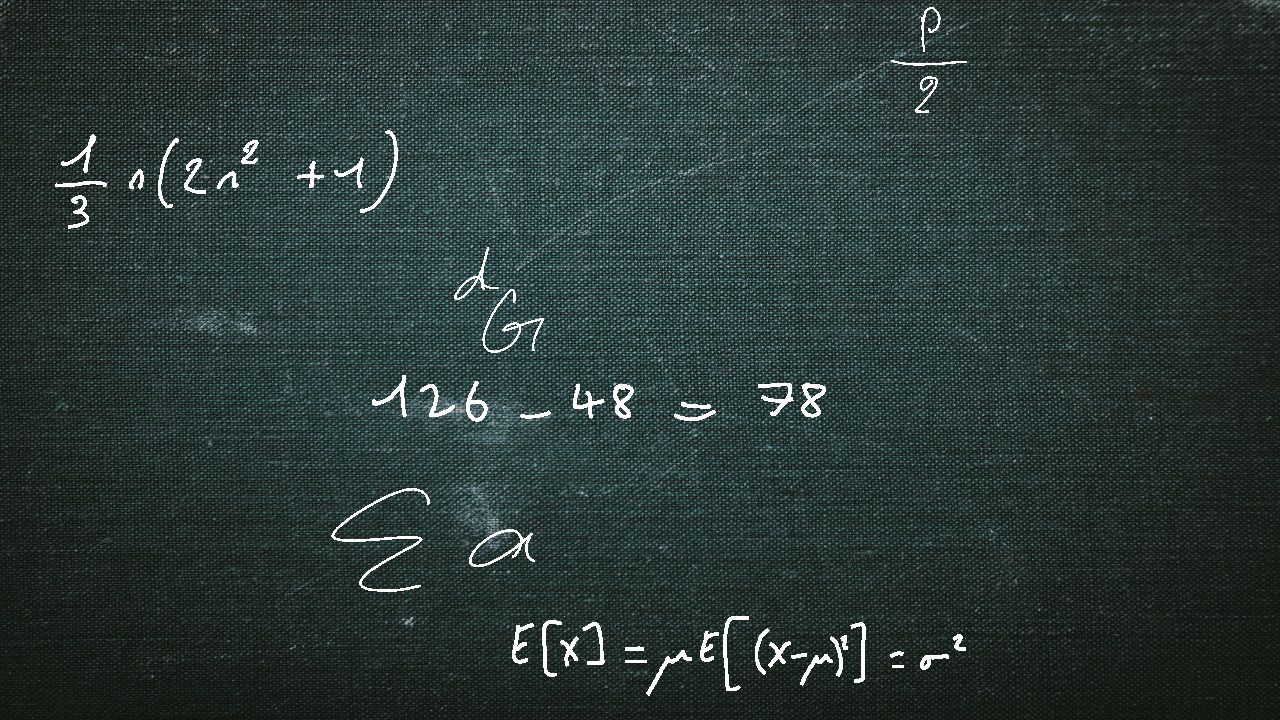 \frac{p}{2}
\frac{1}{3} n(2n^2 + 1)
d_G
126 - 48 = 78
\sum a
E[X] = \mu E[(X-\mu)^2] = \sigma^2